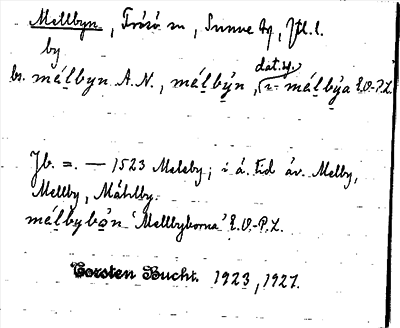 Mellbyn, Frösö sn, Sunne tg, Jtl. l.
by
dat. sg.
bs. málbyn A.N., málby̱n, i málby̱a E.O-P.L.
Jb. =. — 1523 Meleby; i ä. tid äv. Melby,
Mellby, Mählby.
málbybo̱n 'Mellbyborna' E.O.-P.L.
Torsten Bucht. 1923, 1927.